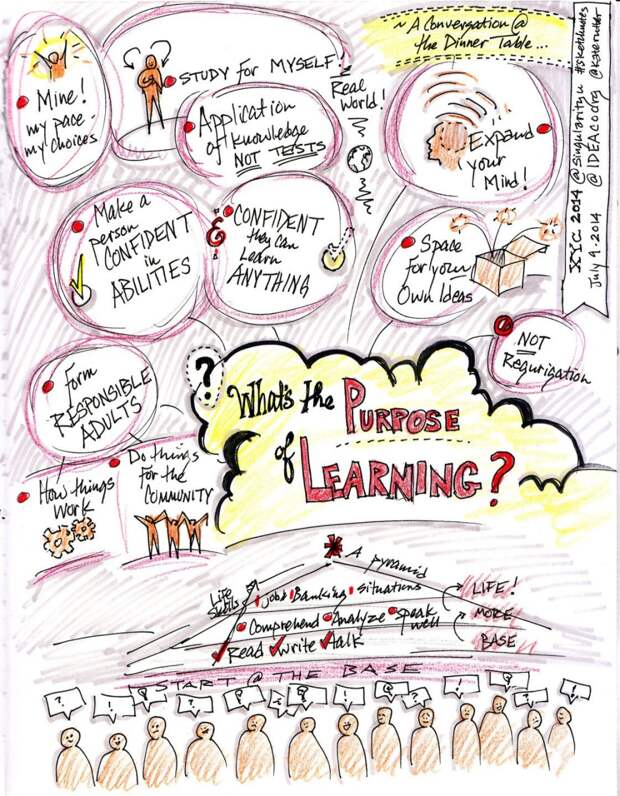 ~ A Conversation @
the Dinner Table...
XYC 2014 @singularityu #sketchnotes
July 9 · 2014 @IDEAcoorg @katerutter
Mine!
my pace -
my choices
STUDY for MYSELF!
Application
of knowledge
NOT TESTS
Real
World!
Expand
your
Mind!
Make a
person
CONFIDENT
in
ABILITIES
&
CONFIDENT
they can
Learn
ANYTHING
Space
for your
Own Ideas
NOT
Regurigation
Form
RESPONSIBLE
ADULTS
How things
WORK
Do things
FOR the
COMMUNITY
?
What's the PURPOSE
of LEARNING?
* A pyramid
Life
Skills
jobs Banking situations
LIFE!
Comprehend Analyze Speak
well
MORE
Read write talk
BASE
START @ THE BASE